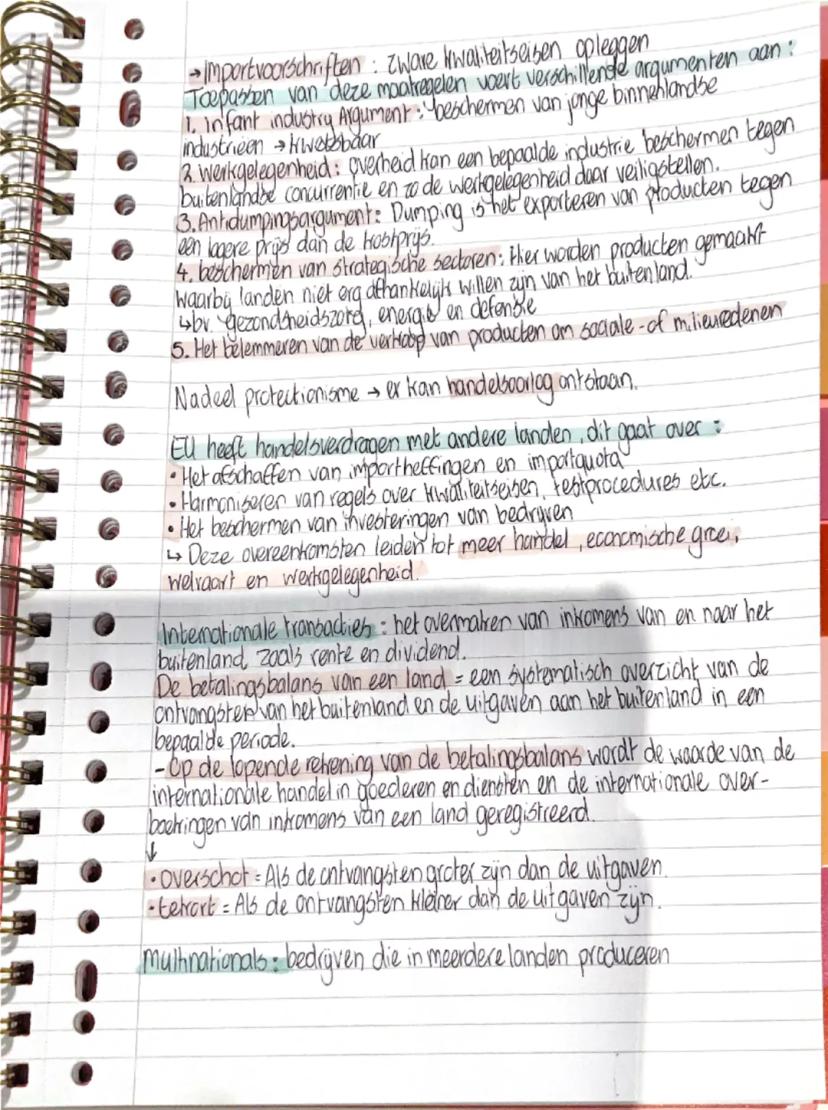 → Importvoorschriften : zware kwaliteitseisen opleggen
Toepassen van deze maatregelen voert verschillende argumenten aan :
1. Infant industry Argument : beschermen van jonge binnenlandse
industrieën → kwetsbaar
2. Werkgelegenheid : overheid kan een bepaalde industrie beschermen tegen
buitenlandse concurrentie en zo de werkgelegenheid daar veiligstellen.
3. Antidumpingsargument : Dumping is het exporteren van producten tegen
een lagere prijs dan de kostprijs.
4. beschermen van strategische sectoren : Hier worden producten gemaakt
waarbij landen niet erg afhankelijk willen zijn van het buitenland.
↳ bv. gezondsheidszorg, energie en defensie
5. Het belemmeren van de verkoop van producten om sociale - of milieuredenen
Nadeel protectionisme → er kan handelsoorlog ontstaan.
EU heeft handelsverdragen met andere landen, dit gaat over :
• Het afschaffen van importheffingen en importquota
• Harmoniseren van regels over kwaliteitseisen, testprocedures etc.
• Het beschermen van investeringen van bedrijven
↳ Deze overeenkomsten leiden tot meer handel, economische groei,
welvaart en werkgelegenheid.
Internationale transacties : het overmaken van inkomens van en naar het
buitenland, zoals rente en dividend.
De betalingsbalans van een land = een systematisch overzicht van de
ontvangsten van het buitenland en de uitgaven aan het buitenland in een
bepaalde periode.
- Op de lopende rekening van de betalingsbalans wordt de waarde van de
internationale handel in goederen en diensten en de internationale over-
boekingen van inkomens van een land geregistreerd.
↓
• overschot = Als de ontvangsten groter zijn dan de uitgaven.
• tekort = Als de ontvangsten kleiner dan de uitgaven zijn.
Multinationals : bedrijven die in meerdere landen produceren